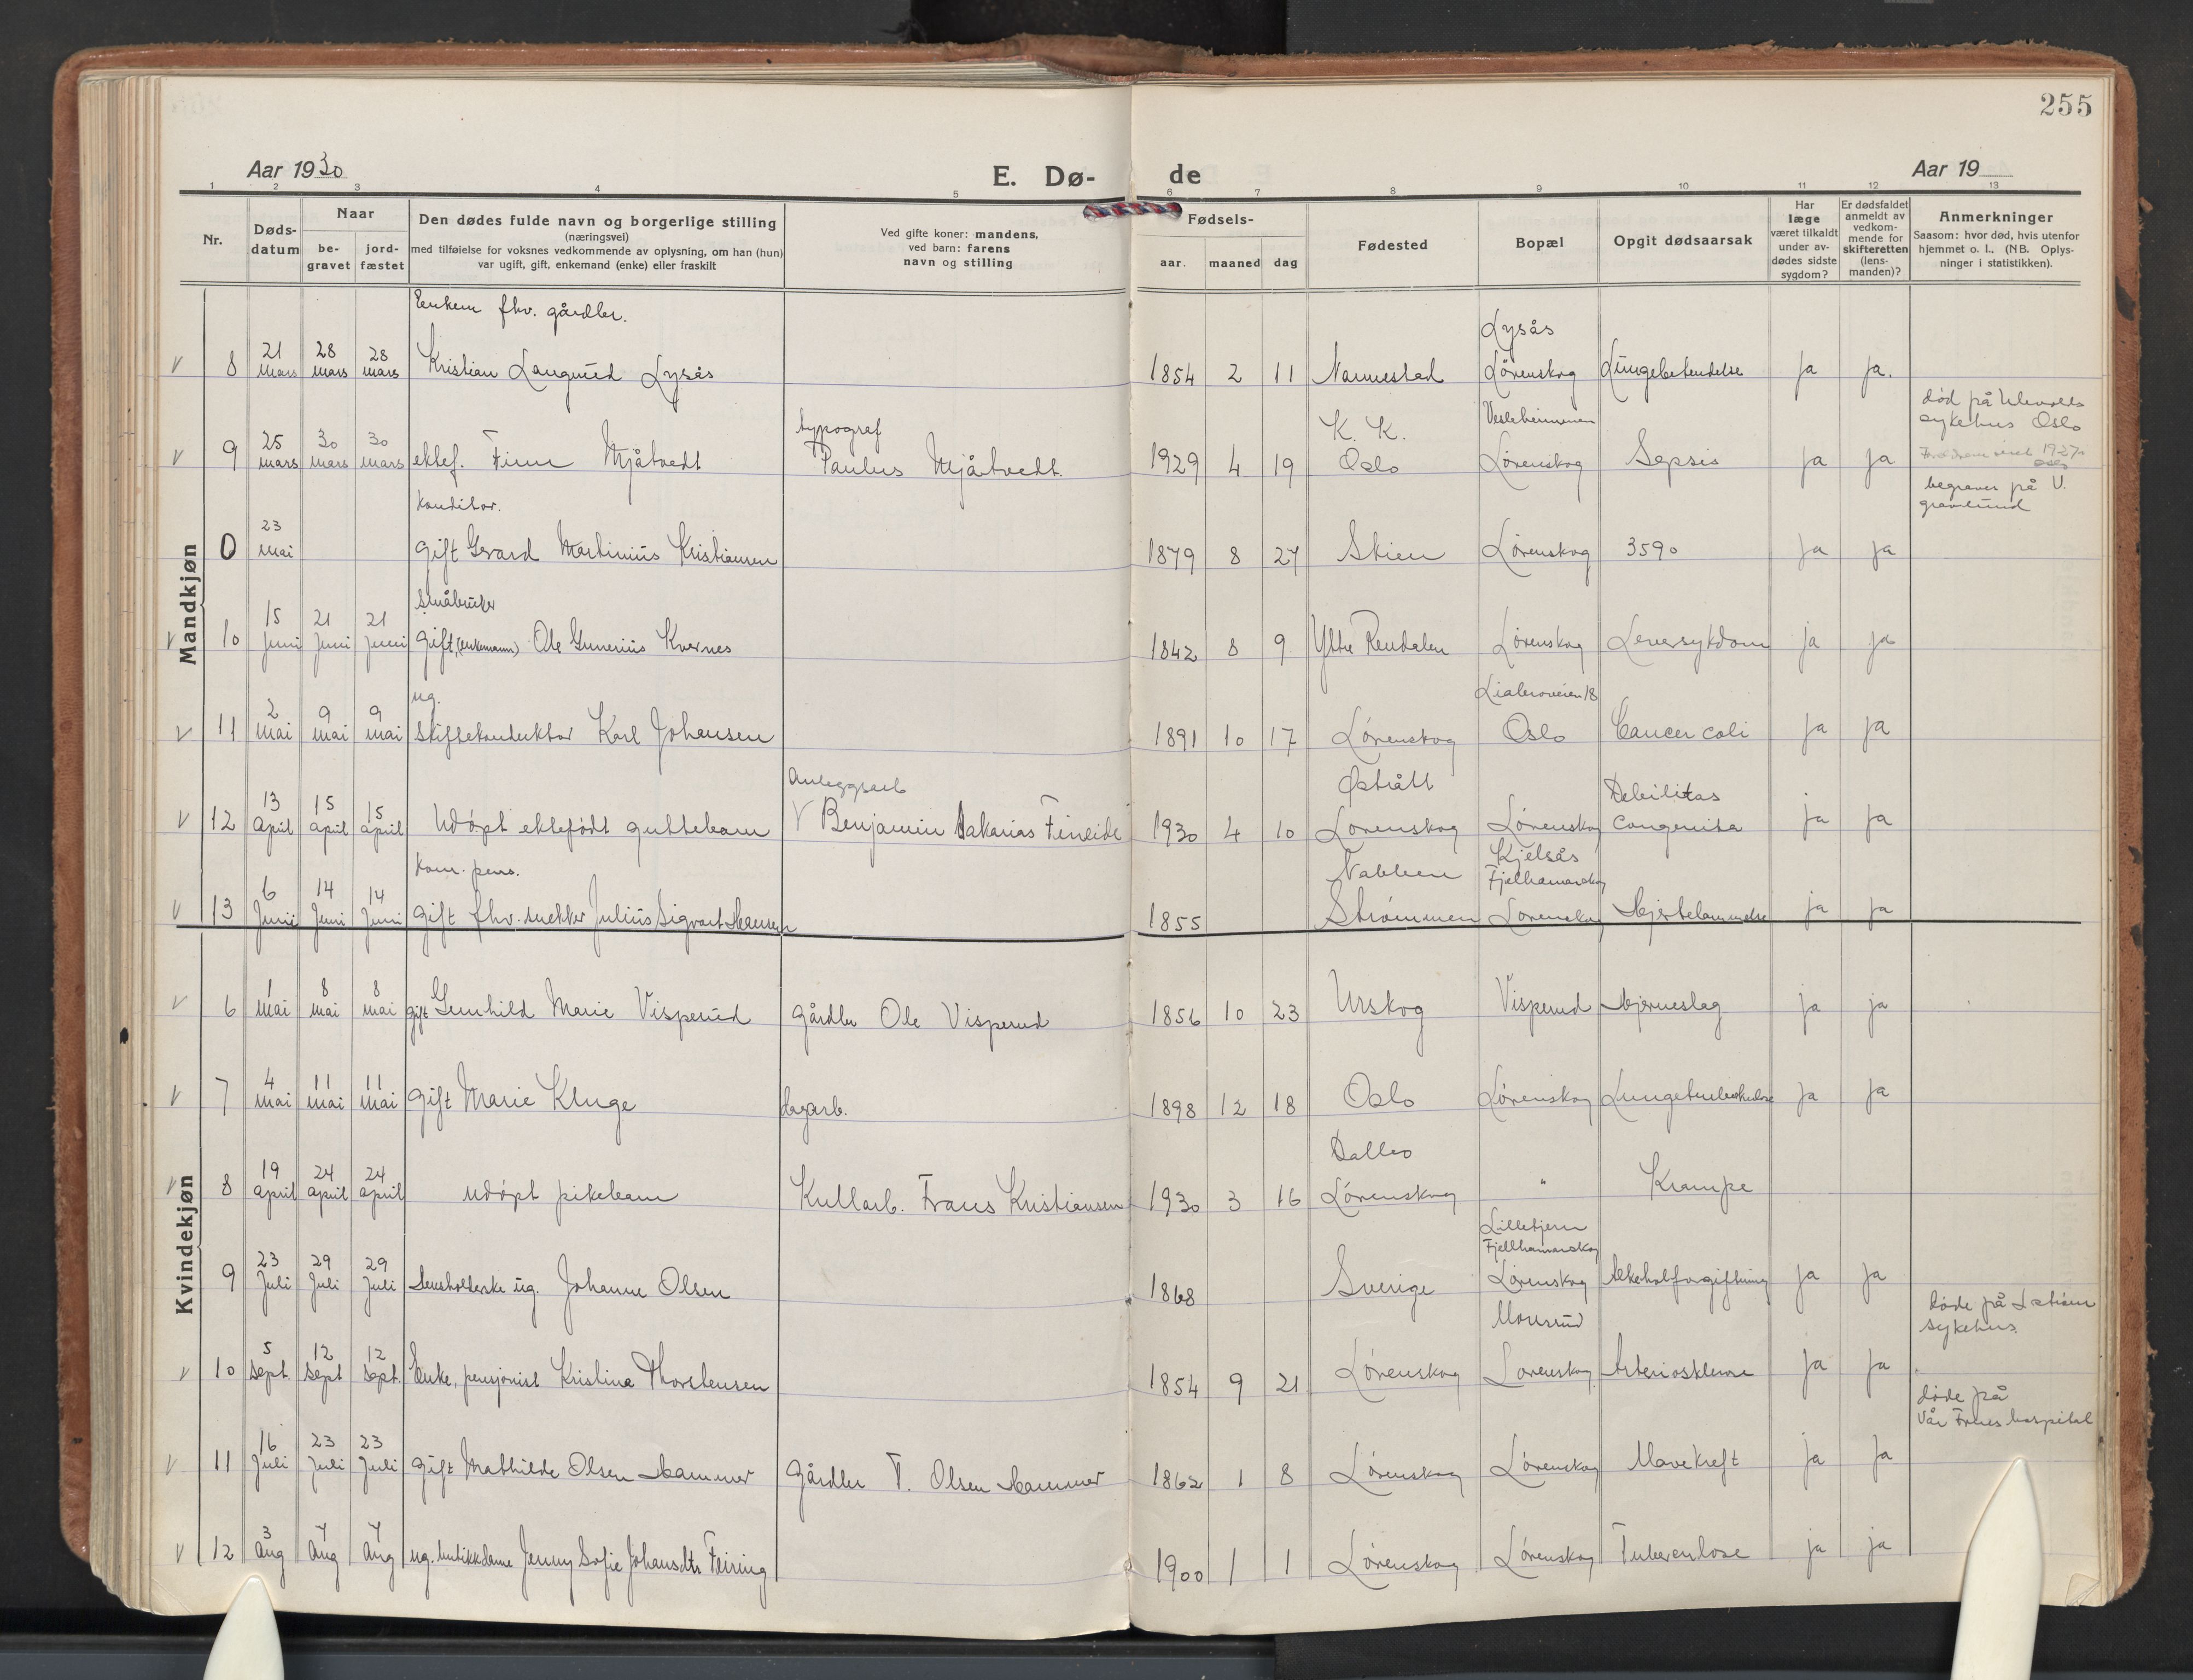 255
Aar 1930 E. Dø- de Aar 19
1 2 3 4 5 6 7 8 9 10 11 12 13
Nr. Døds-datum Naar be-gravet jord-fæstet Den dødes fulde navn og borgerlige stilling (næringsvei) med tilføielse for voksnes vedkommende av oplysning, om han (hun) var ugift, gift, enkemand (enke) eller fraskilt Ved gifte koner: mandens, ved barn: farens navn og stilling Fødsels- aar. maaned dag Fødested Bopæl Opgit dødsaarsak Har læge været tilkaldt under av-dødes sidste sygdom? Er dødsfaldet anmeldt av vedkom-mende for skifteretten (lens-manden)? Anmerkninger Saasom: hvor død, hvis utenfor hjemmet o. l., (NB. Oplys-ninger i statistikken).
Mandkjøn
Enkem fhv. gårdbr. Lysås
8 21 mars 28 mars 28 mars Kristian Langrud Lysås 1854 2 11 Nannestad Lørenskog Lungebetendelse ja ja.
typograf K. K. Vesleheimen død på Ulevolls sykehus Oslo
9 25 mars 30 mars 30 mars ektef. Finn Mjåtvedt Paulus Mjåtvedt. 1929 4 19 Oslo Lørenskog Sepsis ja ja
Konditor. begraves på V. gravlund
0 23 mai gift Gerard Martinius Kristiansen 1879 8 27 Skien Lørenskog 3590 ja ja
Småbruker
10 15 Juni 21 Juni 21 Juni gift, (enkemann) Ole Gunerius Kvernes 1842 8 9 Ytre Rendalen Lørenskog Leversykdom ja ja
ug. Liabroveien 18
11 2 mai 9 mai 9 mai Skiftekonduktør Karl Johansen 1891 10 17 Lørenskog Oslo Cancer coli ja ja
Anleggsarb Østrått Debilitas
12 13 april 15 april 15 april Udøpt ektefødt guttebarn V Benjamin Sakarias Fineide 1930 4 10 Lørenskog Lørenskog Congenita ja ja
Kom. pens. Nabben Kjelsås Fjelhamarskog
13 6 Juni 14 Juni 14 Juni gift fhv. snekker Julius Sigvart Hansen 1855 Strømmen Lørenskog Hjertelammelse ja ja
Kvindekjøn
6 1 mai 8 mai 8 mai gift Gunhild Marie Visperud gårdbr Ole Visperud 1856 10 23 Urskog Visperud Hjerneslag ja ja
7 4 mai 11 mai 11 mai gift Marie Kluge dagarb. 1898 12 18 Oslo Lørenskog Lungetuberkulose ja ja
Dalleo
8 19 april 24 april 24 april udøpt pikebarn Kullarb. Frans Kristiansen 1930 3 16 Lørenskog " Krampe
Lilletjern Fjellhamarskog
9 23 Juli 29 Juli 29 Juli Husholderske ug. Johanne Olsen 1868 Sverige Lørenskog Alkoholforgiftning ja ja
døde på sykehus.
10 5 sept. 12 sept 12 sept. Enke, pensjonist Kristine Thorstensen 1854 9 21 Lørenskog Lørenskog Arteriosklerose ja ja
døde på Vår Frues hospital
11 16 Juli 23 Juli 23 Juli gift Mathilde Olsen Hammer gårdbr T. Olsen Hammer 1862 1 8 Lørenskog Lørenskog Mavekreft ja ja
12 3 Aug 7 Aug 7 Aug ug. butikkdame Jenny Sofie Johansdtr Feiring 1900 1 1 Lørenskog Lørenskog Tuberculose ja ja